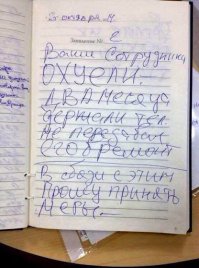 5 октября 14
Заявление №
2
Ваши сотрудники
ОХУЕЛИ.
ДВА месяца
держали тел.
не передавая
его в ремонт
В связи с этим
Прошу принять
меры.